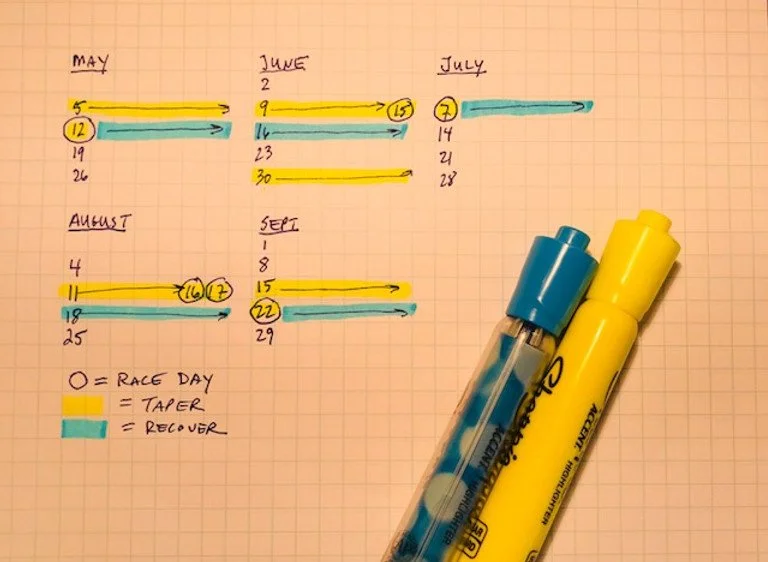 MAY
5
12
19
26
JUNE
2
9 15
16
23
30
JULY
7
14
21
28
AUGUST
4
11 16 17
18
25
SEPT
1
8
15
22
29
O = RACE DAY
= TAPER
= RECOVER
Sharpie
ACCENT HIGHLIGHTER
ACCENT HIGHLIGHTER